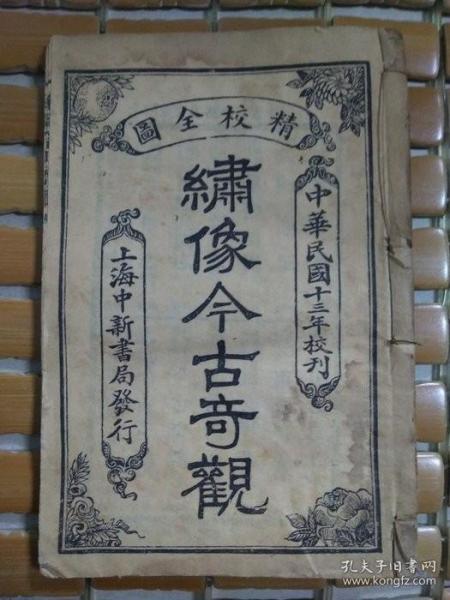 精校全圖
中華民國十三年校刊
繡像今古奇觀
上海中新書局發行
孔夫子旧书网
www.kongfz.com